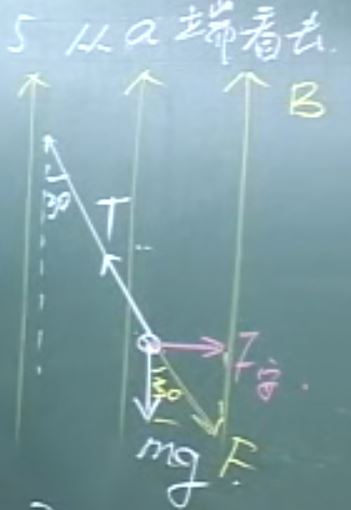 5 从a端看去.
B
30
T
F安.
30
mg
F.